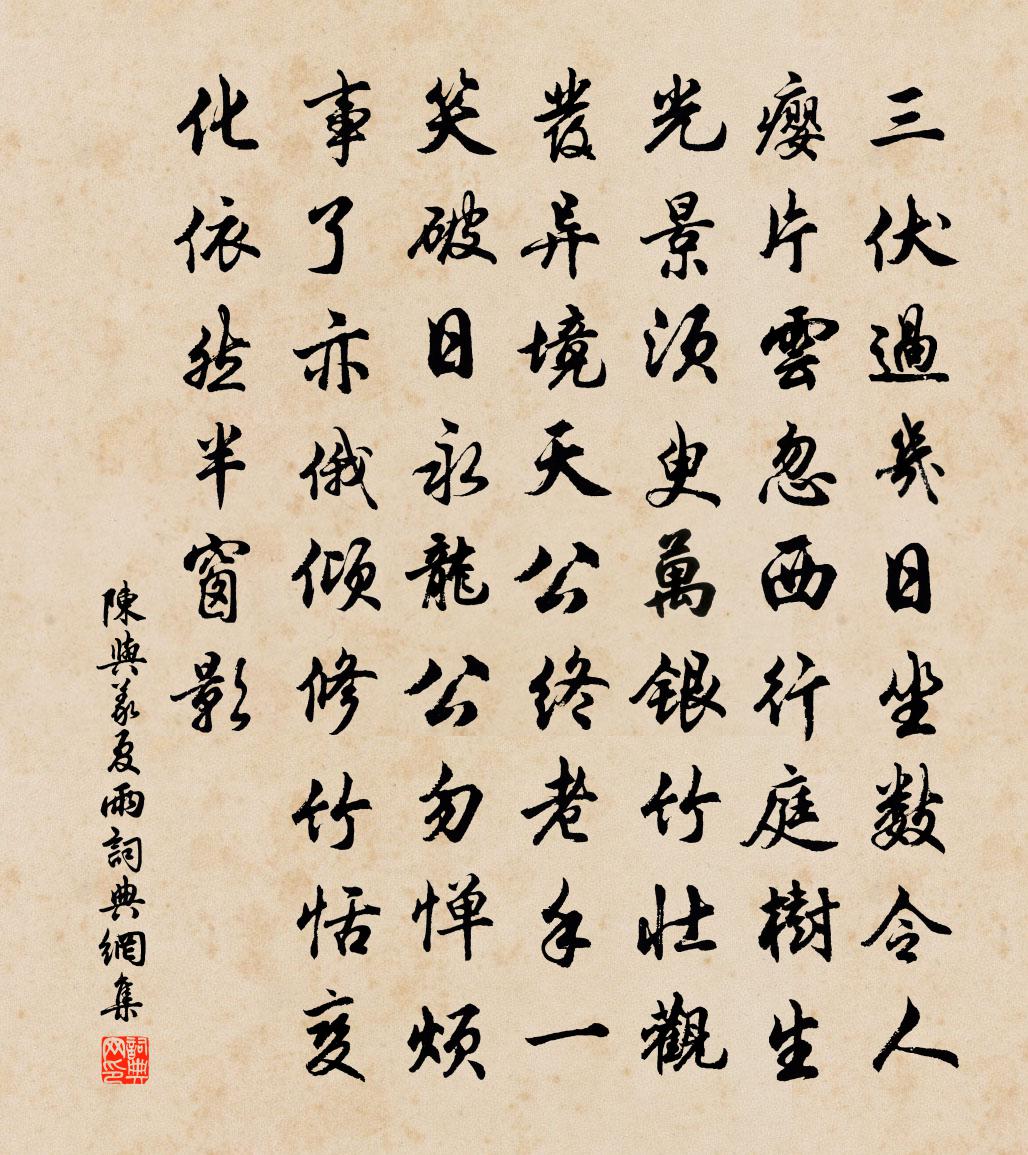 三伏過幾日坐數令人
癭片雲忽西行庭樹生
光景須臾萬銀竹壯觀
發异境天公終老手一
笑破日永龍公勿憚煩
事了亦俄傾修竹恬變
化依然半窗影
陳與義夏雨詞典網集
詞典网印